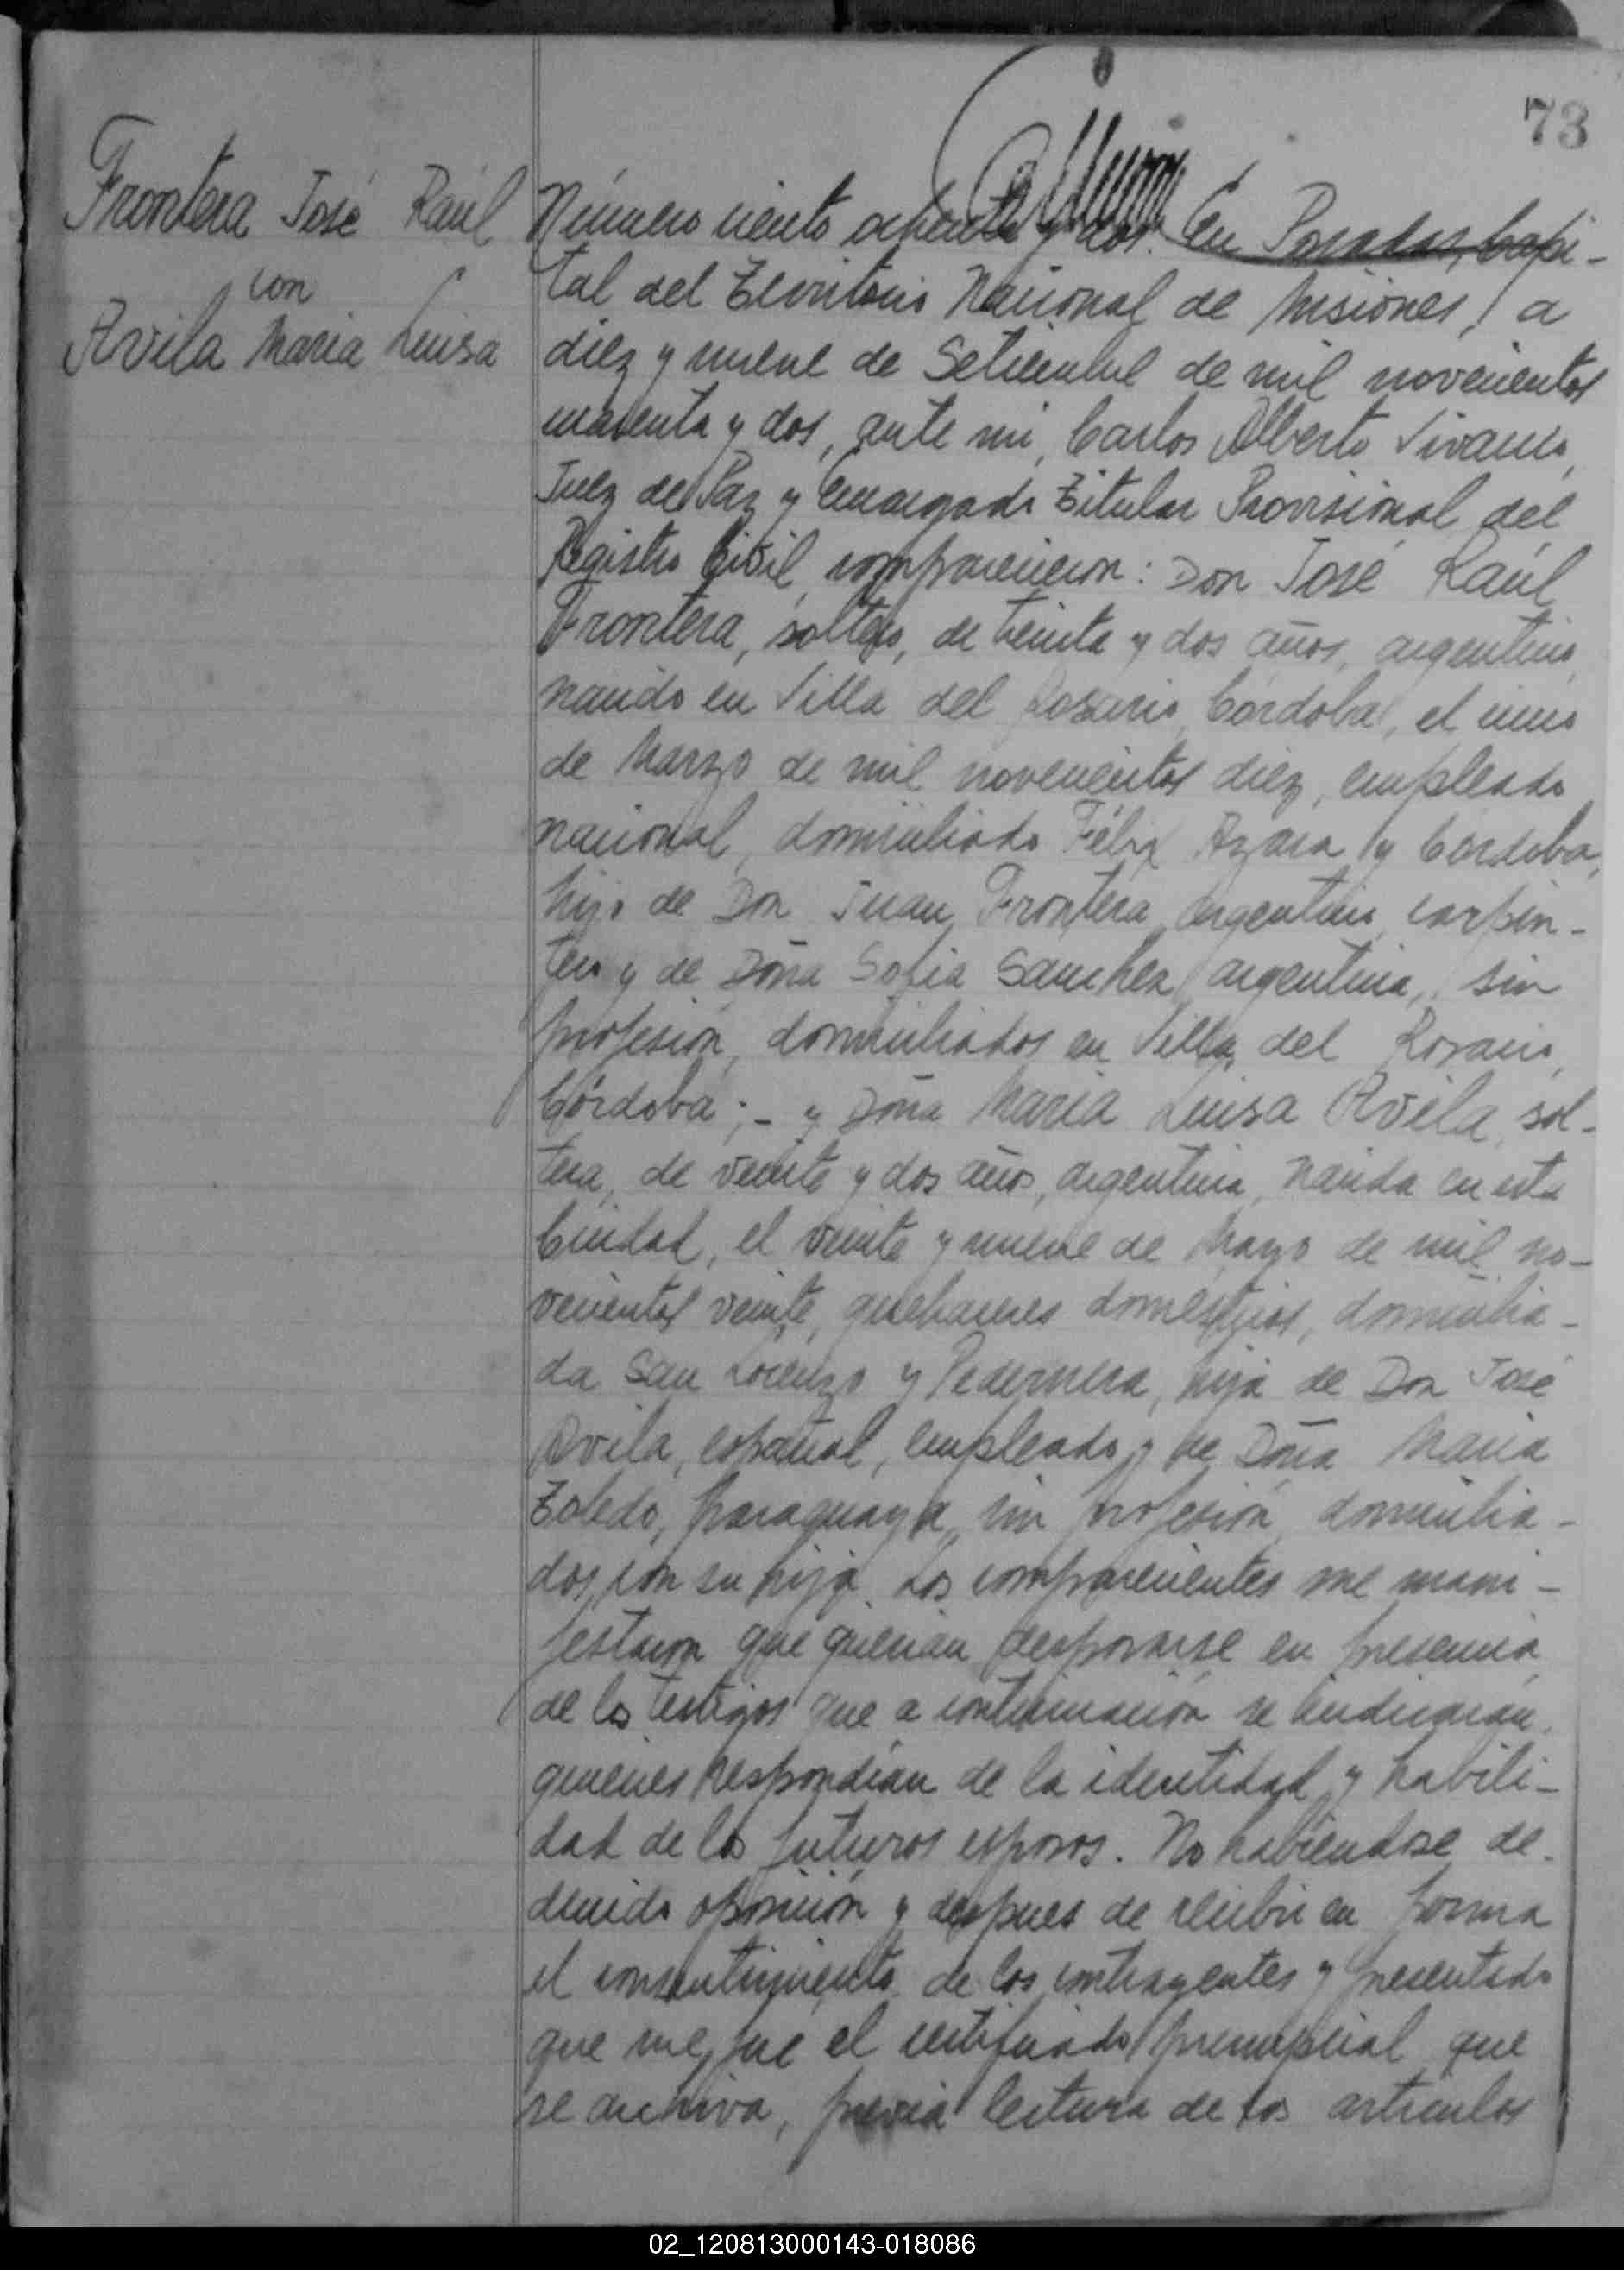 73
Frontera José Raúl
con
Avila Maria Luisa
Número ciento ochenta y dos. En Posadas, Capi-
tal del Territorio Nacional de Misiones, a
diez y nueve de Setiembre de mil novecientos
cuarenta y dos, ante mi, Carlos Alberto Vivanco,
Juez de Paz y Encargado Titular Provisional del
Registro Civil, comparecieron: Don José Raúl
Frontera, soltero, de treinta y dos años, argentino,
nacido en Villa del Rosario, Córdoba, el cinco
de Marzo de mil novecientos diez, empleado
nacional, domiciliado Félix Azara y Córdoba,
hijo de Don Juan Frontera, argentino, carpin-
tero y de Doña Sofia Sanchez, argentina, sin
profesión, domiciliados en Villa del Rosario,
Córdoba;- y Doña Maria Luisa Avila, sol-
tera, de veinte y dos años, argentina, nacida en esta
Ciudad, el veinte y nueve de Mayo de mil no-
vecientos veinte, quehaceres domésticos, domicilia-
da San Lorenzo y Pedernera, hija de Don José
Avila, español, empleado y de Doña Maria
Toledo, paraguaya, sin profesión, domicilia-
dos con su hija. Los comparecientes me mani-
festaron que querian desposarse en presencia
de los testigos que a continuación se indicarán,
quienes respondian de la identidad y habili-
dad de los futuros esposos. No habiendose de-
ducido oposición y despues de recibir en forma
el consentimiento de los contrayentes y presentado
que me fue el certificado prenupcial que
se archiva, previa lectura de los articulos
02_120813000143-018086